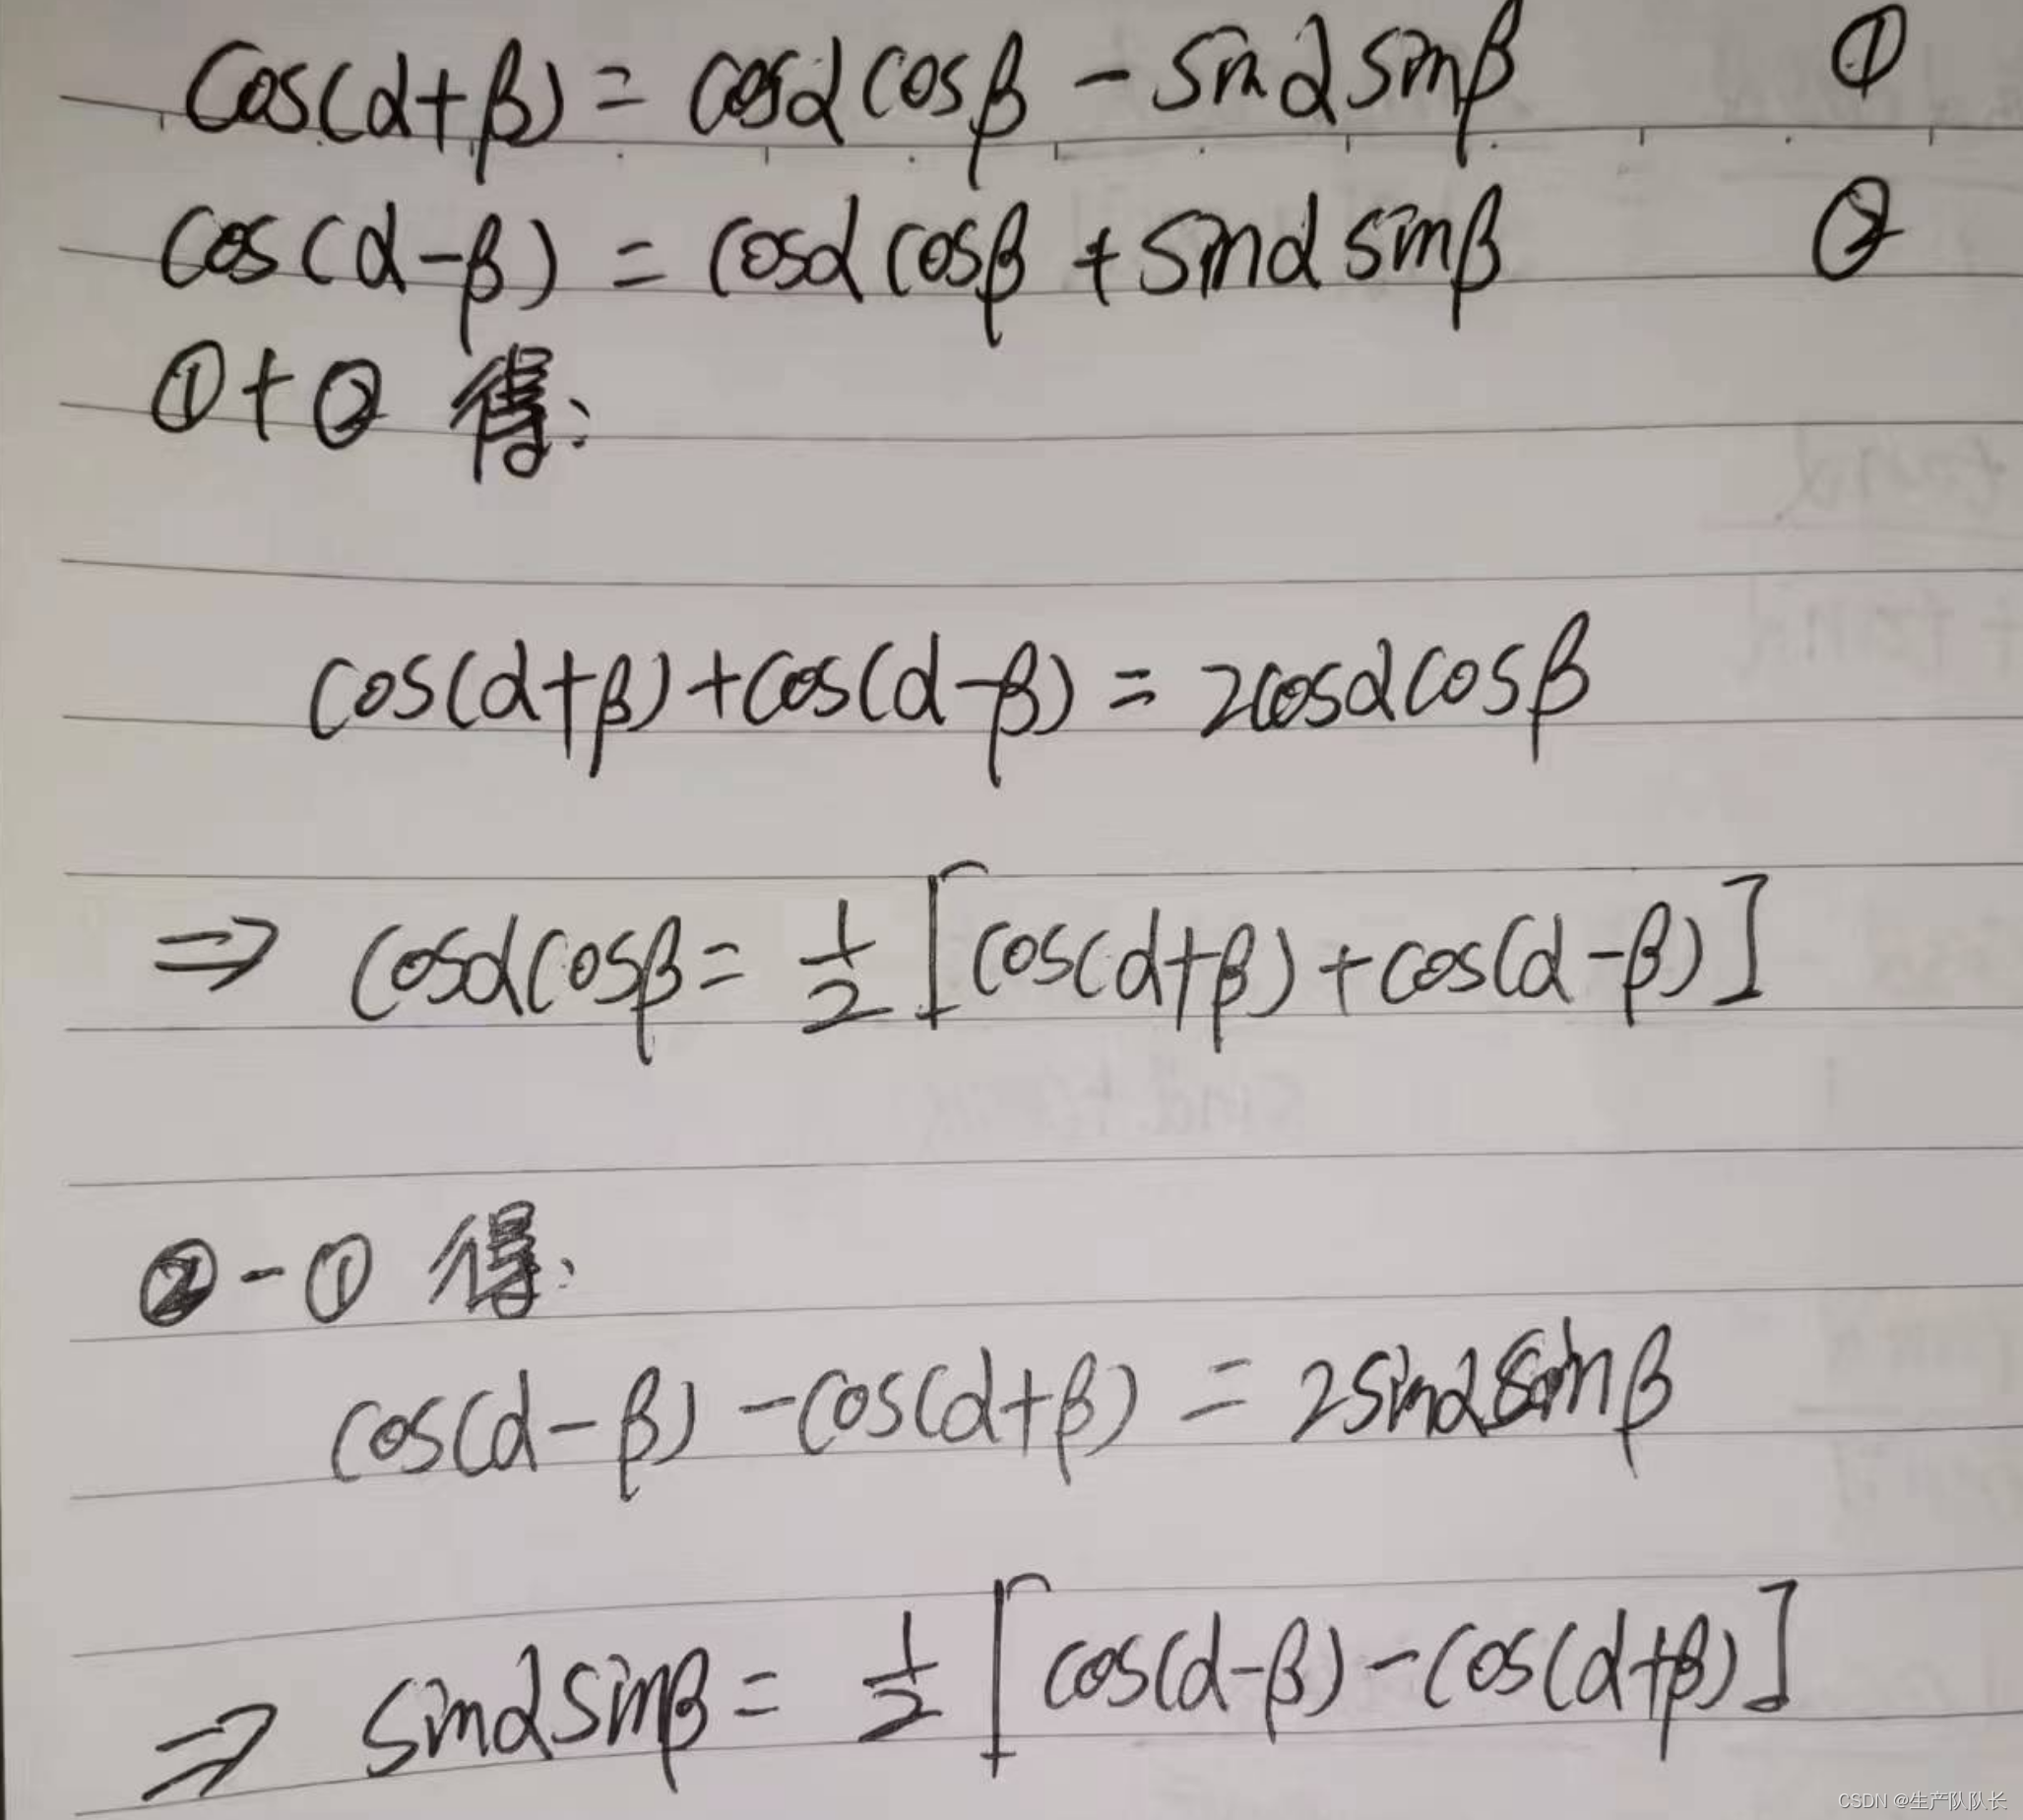 cos(α+β) = cosαcosβ - sinαsinβ ①
cos(α-β) = cosαcosβ + sinαsinβ ②
①+② 得:
cos(α+β)+cos(α-β) = 2cosαcosβ
⇒ cosαcosβ = 1/2 [cos(α+β)+cos(α-β)]
②-① 得:
cos(α-β) - cos(α+β) = 2sinαsinβ
⇒ sinαsinβ = 1/2 [cos(α-β) - cos(α+β)]
CSDN @生产队队长